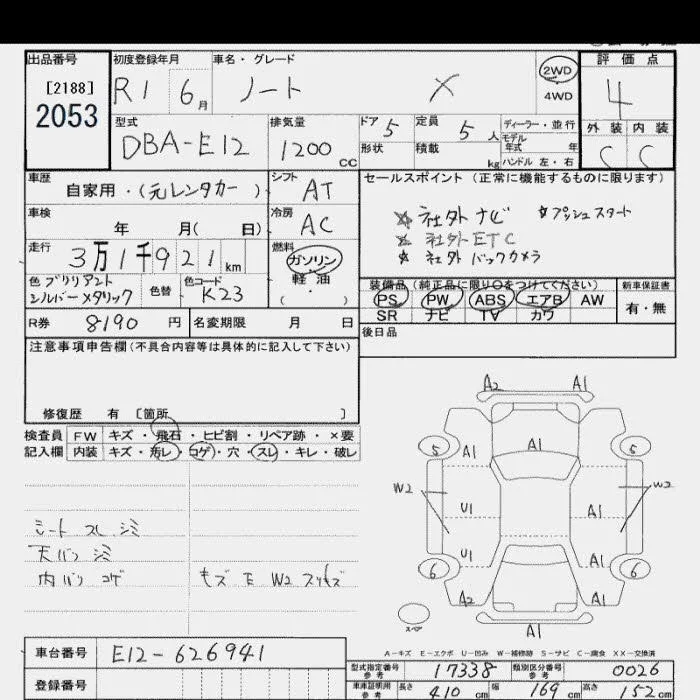 出品番号
[2188]
2053
初度登録年月
R1 6月
車名・グレード
ノート X
2WD
4WD
評価点
4
外装 内装
C C
型式
DBA-E12
排気量
1200 CC
ドア 5
形状
定員 5人
積載 kg
ディーラー・並行
モデル
年式 年
ハンドル 左・右
車歴
自家用・(元レンタカー)
シフト
AT
車検
年 月( 日)
冷房
AC
走行
3万1千921km
燃料
ガソリン
軽油
( ・ )
色 ブリリアント
シルバーメタリック
色替
色コード
K23
セールスポイント (正常に機能するものに限ります)
☆社外ナビ ☆プッシュスタート
☆社外ETC
☆社外バックカメラ
装備品(純正品に限り〇をつけてください)
PS PW ABS エアB AW
SR ナビ TV カワ
新車保証書
有・無
R券 8190 円
名変期限 月 日
後日品
注意事項申告欄(不具合内容等は具体的に記入して下さい)
修復歴 有 [箇所 ]
検査員
記入欄
FW キズ・飛石・ヒビ割・リペア跡・×要
内装 キズ・汚レ・コゲ・穴・スレ・キレ・破レ
シート スレ シミ
天バリ シミ
内バリ コゲ
モズ E W2 スリキズ
A2 A1
5 A1 A1 5
W2 W2
U1 A1
U1 A1
6 A2 A1 6
スペア
A1
A-キズ E-エクボ U-凹み W-補修跡 S-サビ C-腐食 XX-交換済
車台番号 E12-626941
登録番号
型式指定番号
参考
17338
類別区分番号
参考
0026
車庫証明用
参考
長さ 410 cm
幅 169 cm
高さ 152 cm